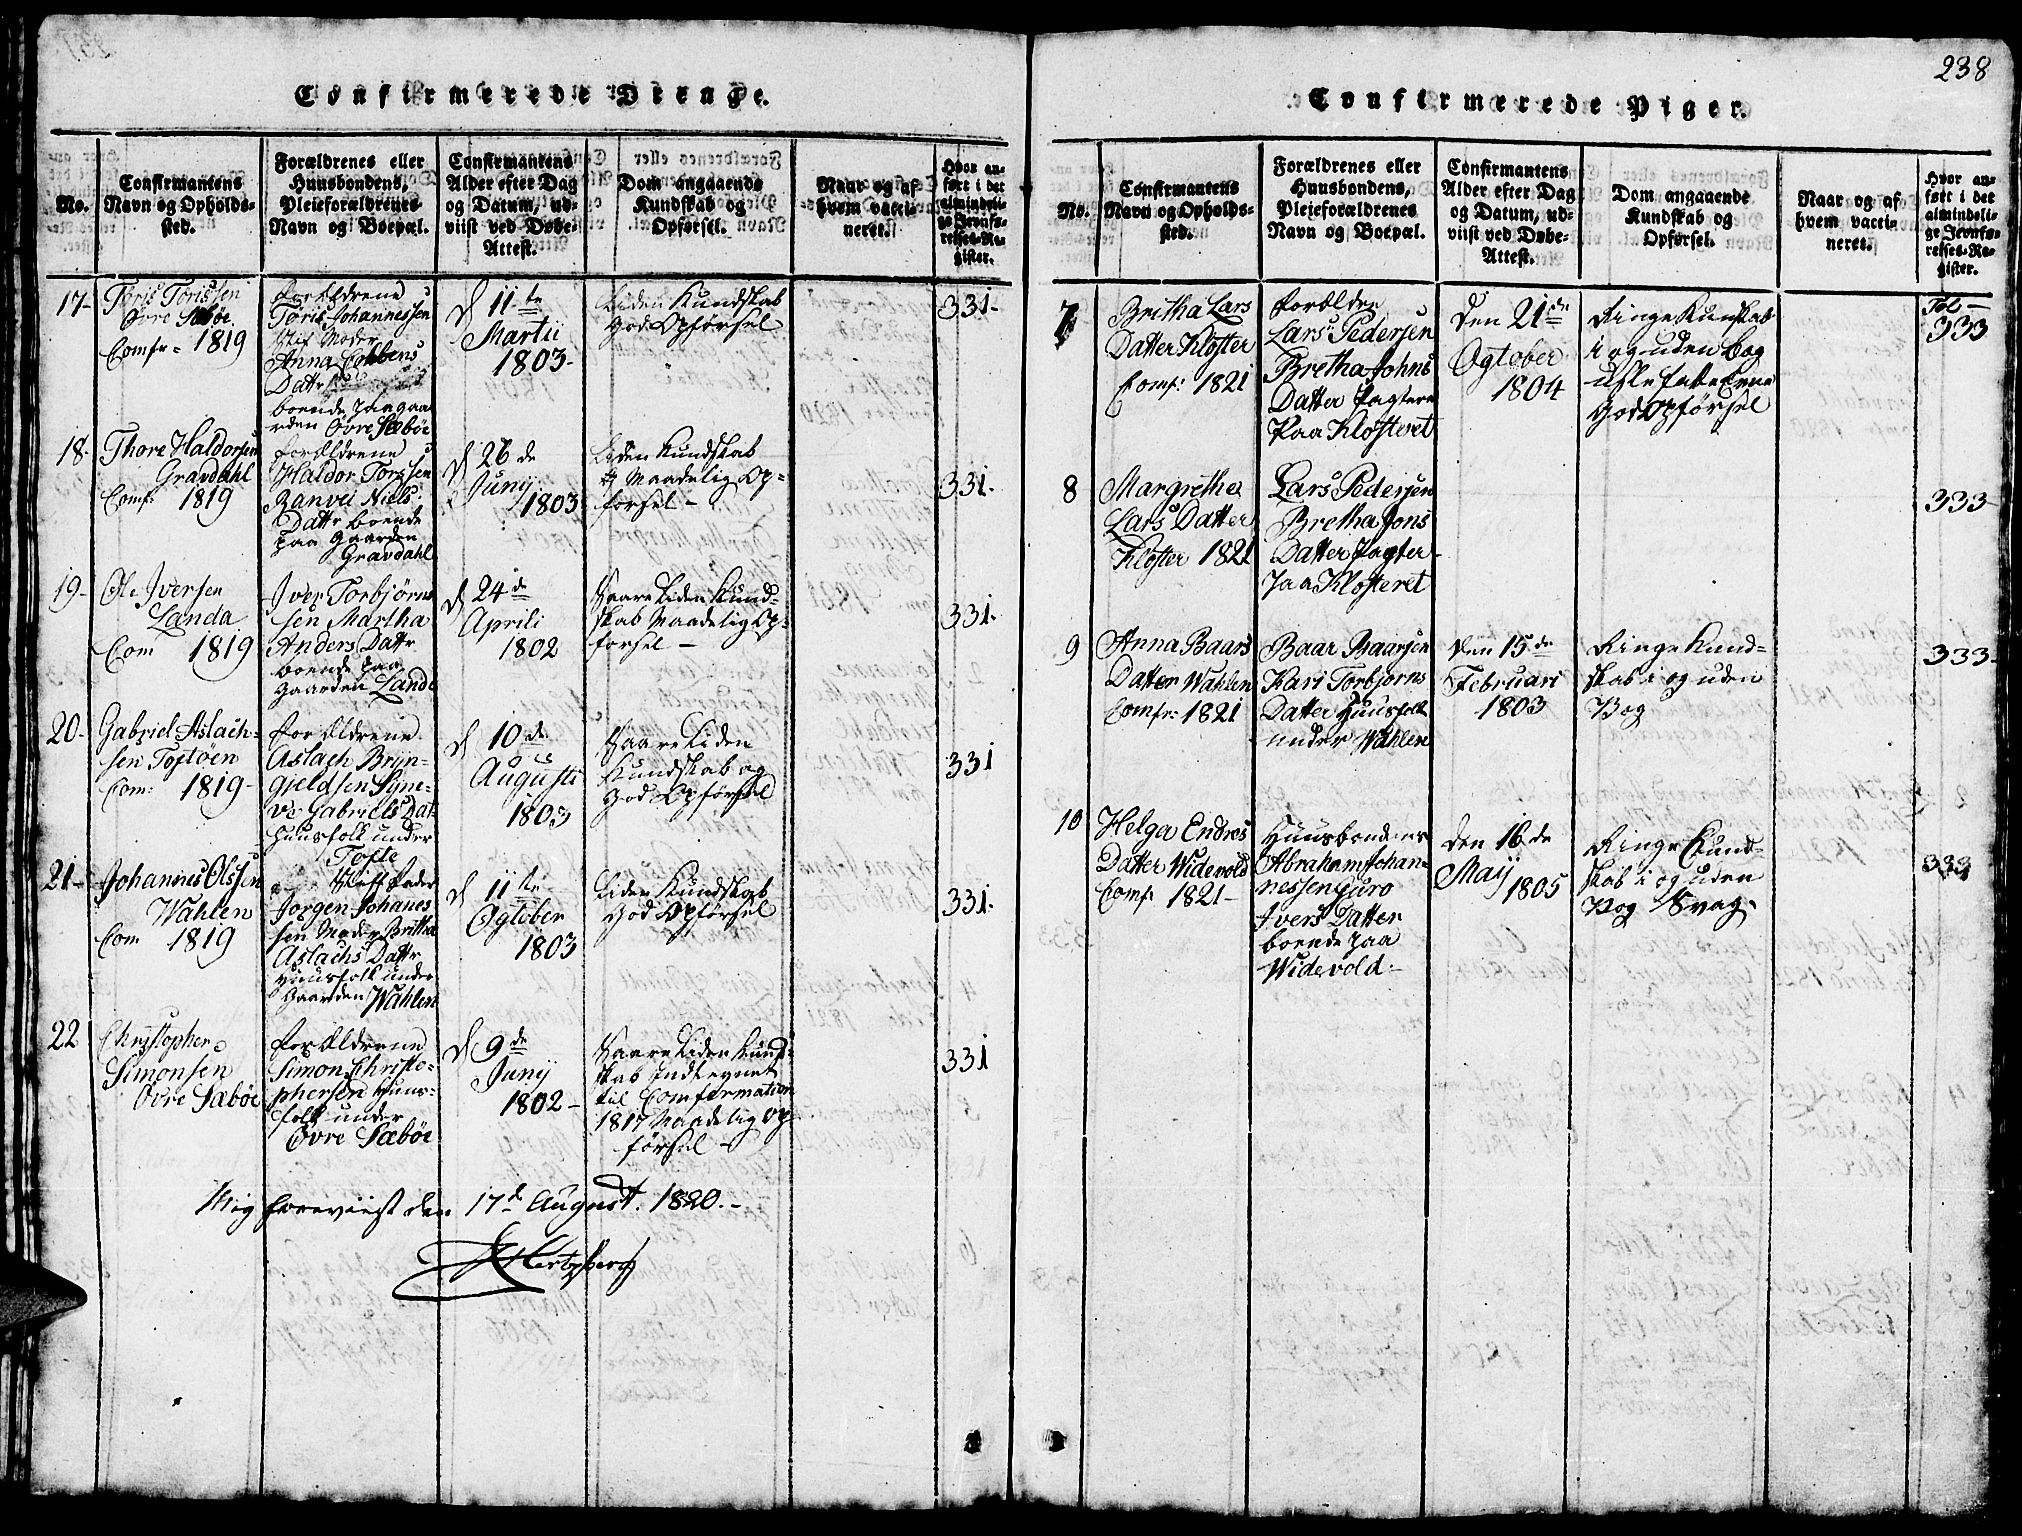 Confirmerede Drenge.
No.
Confirmantens
Navn og Opholds-
sted.
Forældrenes eller
Huusbondens,
Pleieforældrenes
Navn og Boepæl.
Confirmantens
Alder efter Dag
og Datum, ud-
viist ved Døbe-
Attest.
Dom angaaende
Kundskab og
Opførsel.
Naar og af
hvem vacci-
neret.
Hvor an-
ført i det
almindeli-
ge Jevnfø-
relses-Re-
gister.
17-
Toris Torissen
Øvre Sæbøe
Comfr= 1819
Forældrene
Toris Johannessen
Stif Moder
Anna
Datr
boende paa gaa
rden Øvre Sæbøe
d 11te
Martii
1803-
Liden Kundskab
God Opførsel
331-
18-
Thore Haldorsen
Gravdahl
Comf: 1819
Forældrene
Haldor Torssen
Ranvei Niels
Dattr boende
paa Gaarden
Gravdahl
d 26de
Junij
1803
Liden Kundskab
Maadelig Op-
førsel -
331-
19-
Ole Iversen
Landa
Com 1819
Iver Torbjørn
sen Martha
Anders Dattr
boende paa
Gaarden Lande
d 24de
Aprili
1802
Saare Liden Kund-
skab Maadelig Op-
førsel -
331-
20-
Gabriel Aslach-
sen Toftøen
Com: 1819-
Forældrene
Aslach Bryn-
gieldsen Syne-
ve Gabriels Dat-
Huusfolk under
Tofte
d 10de
Augusti
1803
Saare Liden
Kundskab og
God Opførsel
331
21-
Johannes Olssen
Wahlen
Com 1819
Stiffader
Jørgen Johanes
sen Moder Britha
Aslachs Dattr
Huusfolk under
Gaarden Wahlen
d 11te
Ogtober
1803
Liden Kundskab
God Opførsel
331-
22
Christopher
Simonsen
Øvre Sæbøe
Forældrene
Simon Christo-
phersen Huus-
folk under
Øvre Sæbøe
d 9de
Junij
1802-
Saare Liden Kund-
skab Indtegnet
til Comfermation
1817 Maadelig Op
førsel -
331
Mig foreviist den 17de August. 1820.-
Hertzberg
238
Confirmerede Piger.
No.
Confirmantens
Navn og Opholds-
sted.
Forældrenes eller
Huusbondens,
Pleieforældrenes
Navn og Boepæl.
Confirmantens
Alder efter Dag
og Datum, ud-
viist ved Døbe-
Attest.
Dom angaaende
Kundskab og
Opførsel.
Naar og af
hvem vacci-
neret.
Hvor an-
ført i det
almindeli-
ge Jevnfø-
relses-Re-
gister.
7
Britha Lars
Datter Kloster
Comf: 1821
Forældre
Lars Pedersen
Bretha Johns
Datter Pagtere
Paa Klosteret
Den 21de
Ogtober
1804
Ringe Kunskab
i og uden Bog
God Opførsel
Fol-
333
8
Margretha
Lars Datter
Kloster 1821
Lars Pedersen
Bretha Jons
Datter Pagter
Paa Klosteret
333-
9
Anna Baars
Datter Wahlen
Comfr: 1821
Baar Baarsen
Kari Torbjørns
Datter Huusfolk
under Wahlen
Den 15de
Februari
1803
Ringe Kund-
skab i og uden
Bog
333-
10
Helga Endres
Datter Widevold
Comf: 1821-
Huusbonder
Abraham Johan-
nessen Guro
Ivers Datter
boende paa
Widevold-
Den 16de
Maij
1805
Ringe Kund-
skab i og uden
Bog Svag-
333